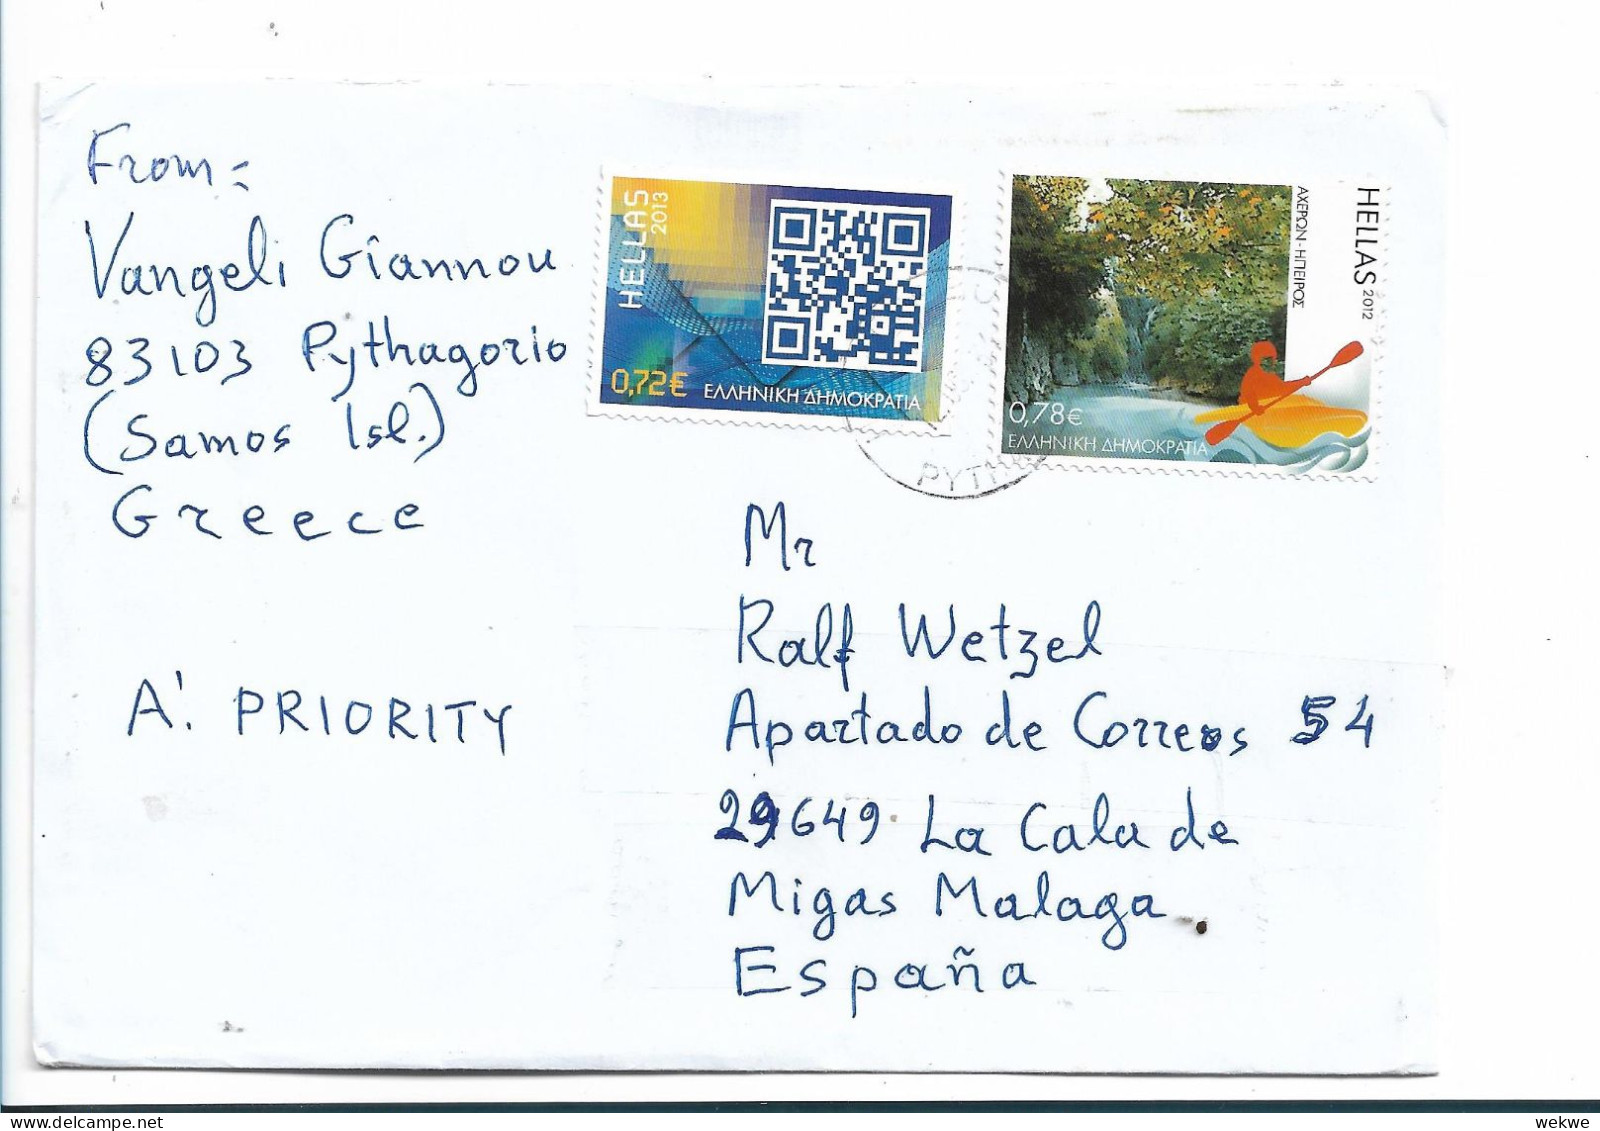 From:
Vangeli Giannou
83103 Pythagorio
(Samos Isl.)
Greece
A'. PRIORITY
HELLAS
2013
0,72€
ΕΛΛΗΝΙΚΗ ΔΗΜΟΚΡΑΤΙΑ
HELLAS 2012
ΑΧΕΡΩΝ - ΗΠΕΙΡΟΣ
0,78€
ΕΛΛΗΝΙΚΗ ΔΗΜΟΚΡΑΤΙΑ
Mr
Ralf Wetzel
Apartado de Correos 54
29649 La Cala de
Migas Malaga
España
wekwe